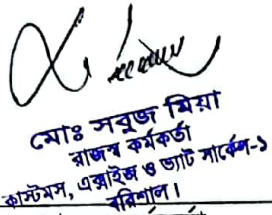 মোঃ সবুজ মিয়া
রাজস্ব কর্মকর্তা
কাস্টমস, এক্সাইজ ও ভ্যাট সার্কেল-১
বরিশাল।